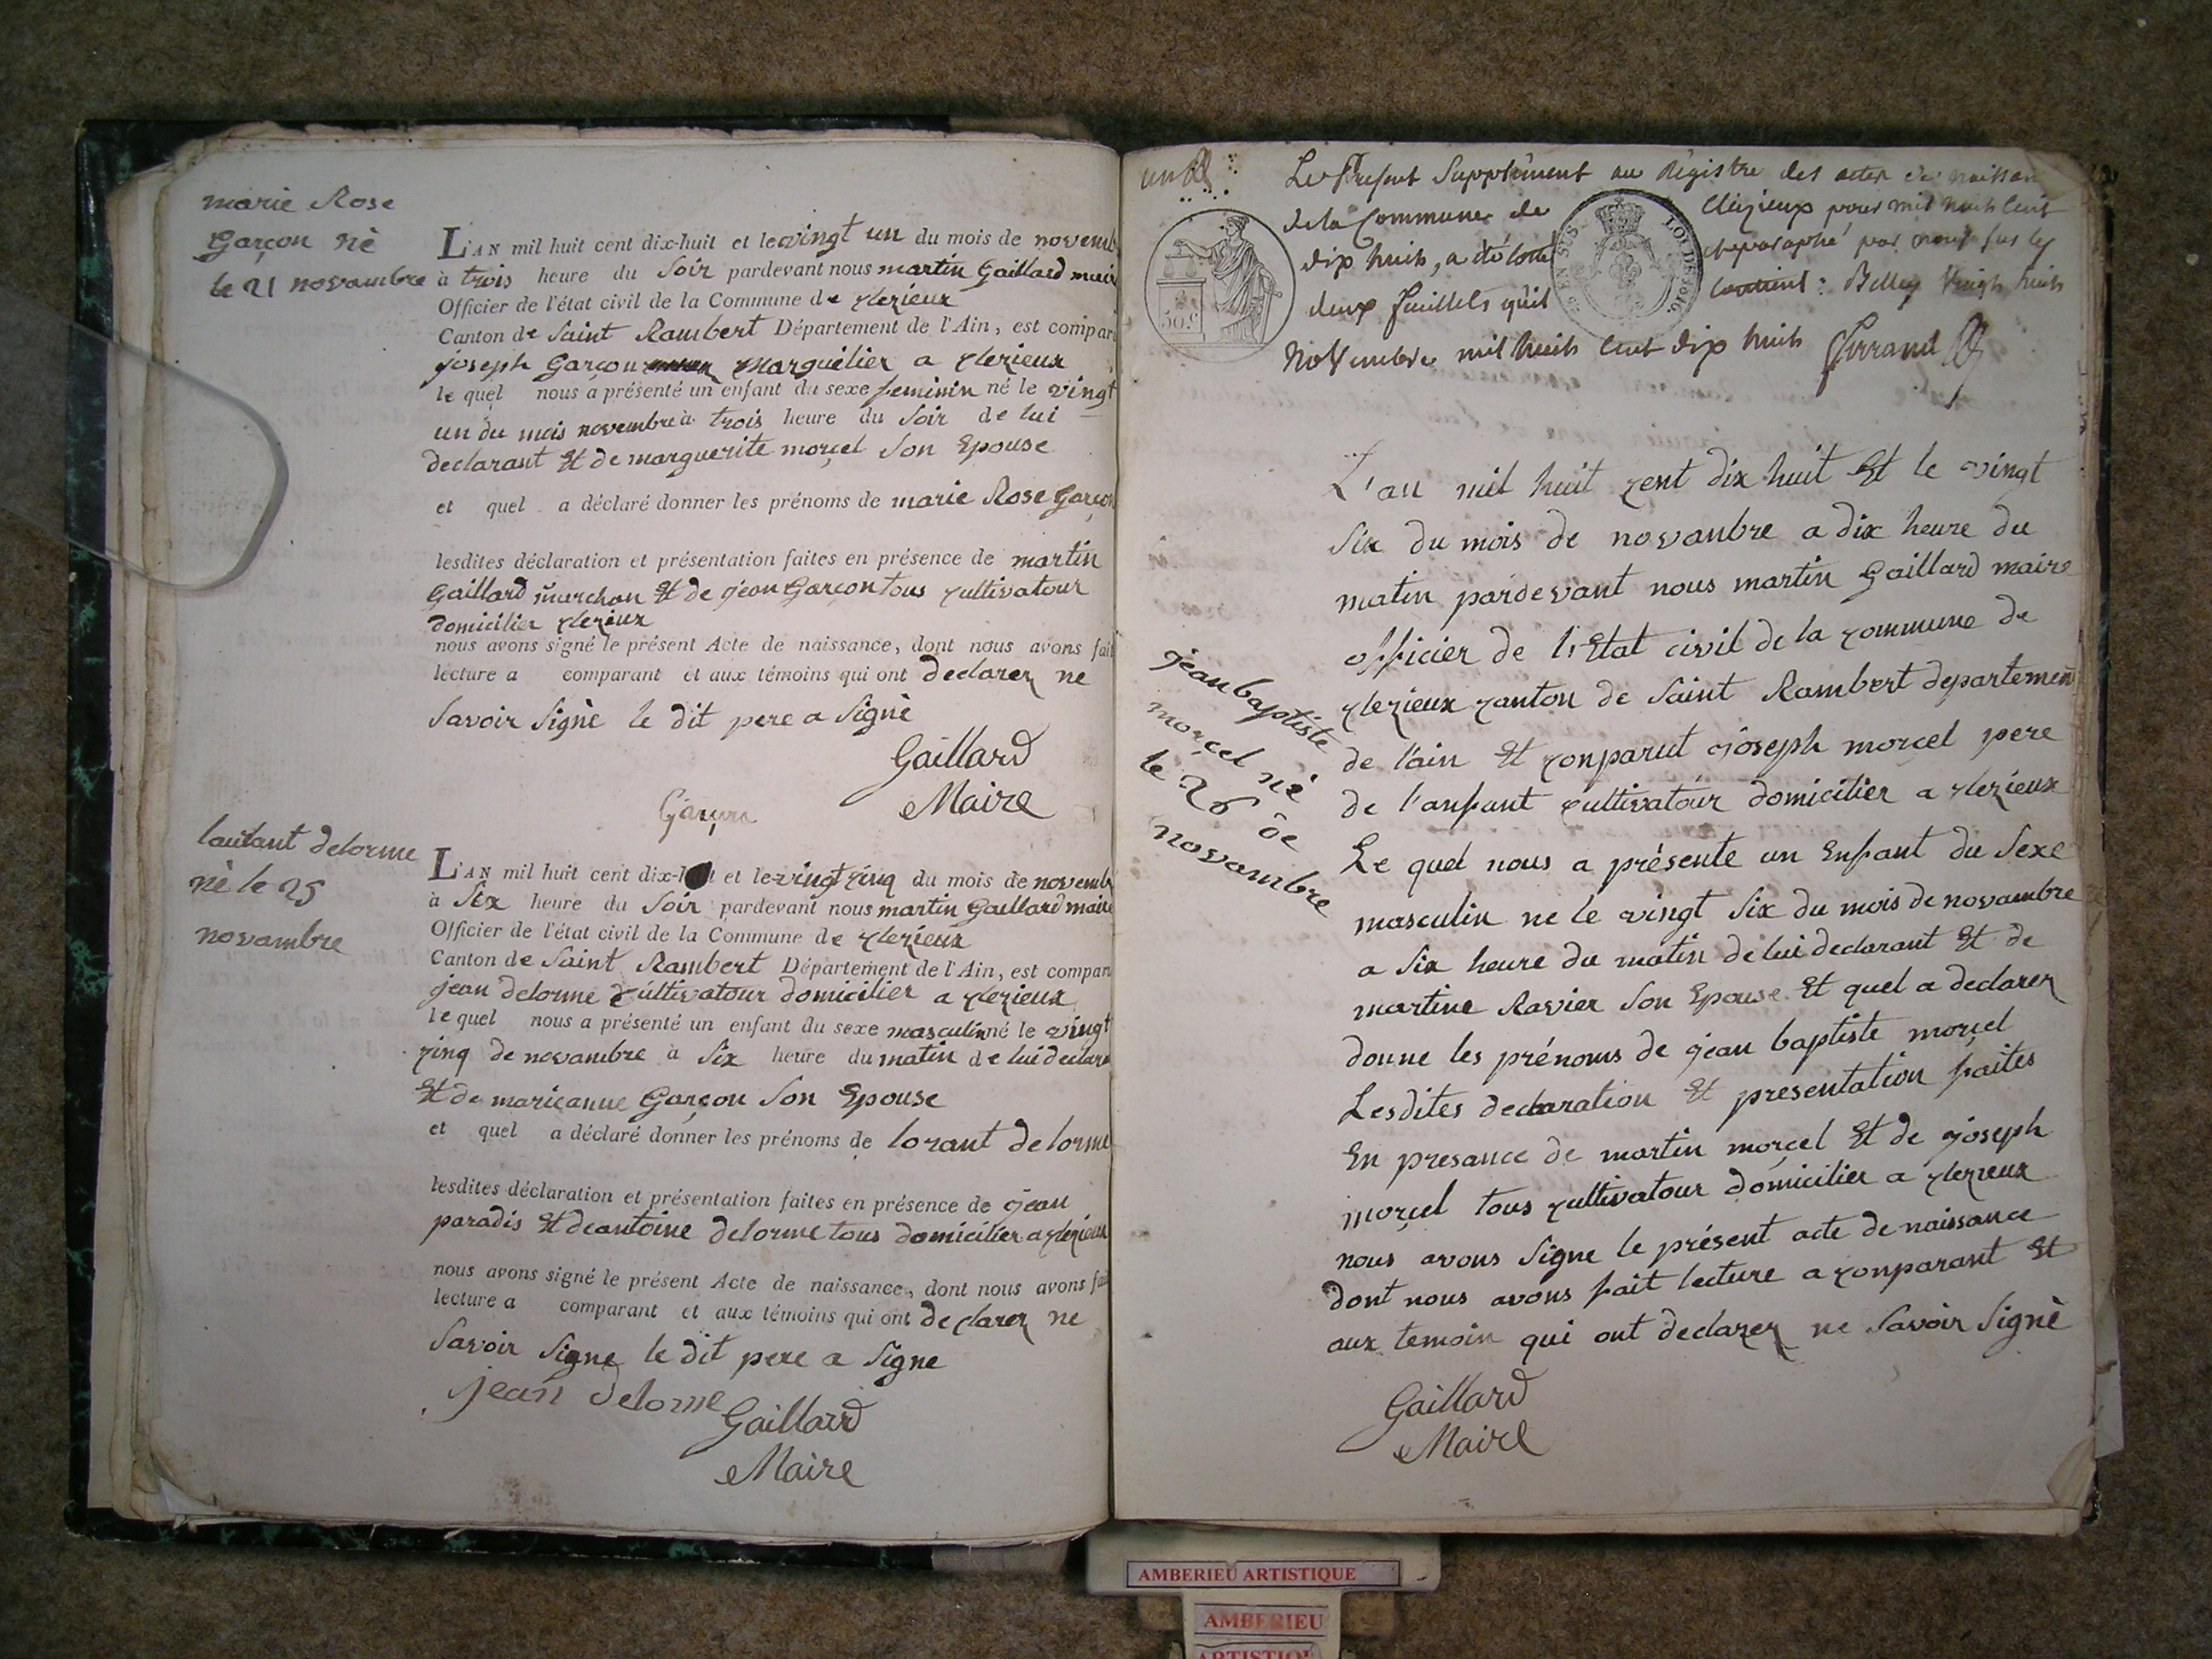 marie Rose
Garçon nè
le 21 novambre
L'AN mil huit cent dix-huit et le vingt un du mois de novemb
à trois heure du Soir pardevant nous martin Gaillard mair
Officier de l'état civil de la Commune de clezieux
Canton de Saint Rambert Département de l'Ain, est compar
joseph Garçon marguèlier a clezieux
le quel nous a présenté un enfant du sexe feminin né le vingt
un du mois novembre à trois heure du Soir de lui
declarant Et de marguerite morçel Son Epouse
et quel a déclaré donner les prénoms de marie Rose Garçon
lesdites déclaration et présentation faites en présence de martin
Gaillard marchan Et de jean Garçon tous cultivatour
domicilier clezieux
nous avons signé le présent Acte de naissance, dont nous avons fait
lecture a comparant et aux témoins qui ont declarer ne
Savoir Signè le dit pere a Signè
Gaillard
Maire
Garçon
lautant delorme
nè le 25
novambre
L'AN mil huit cent dix-h t et le vingt cinq du mois de novemb
à Six heure du Soir pardevant nous martin Gaillard maire
Officier de l'état civil de la Commune de clezieux
Canton de Saint Rambert Département de l'Ain, est compar
jean delorme cultivatour domicilier a clezieux
le quel nous a présenté un enfant du sexe masculin né le vingt
cinq de novambre à Six heure du matin de lui declara
Et de marieanne Garçon Son Epouse
et quel a déclaré donner les prénoms de lorant delorme
lesdites déclaration et présentation faites en présence de jean
paradis Et de antoine delorme tous domicilier a clezieux
nous avons signé le présent Acte de naissance, dont nous avons fai
lecture a comparant et aux témoins qui ont declarer ne
Savoir Signe le dit pere a Signe
jean delorme
Gaillard
Maire
Le Présent Supplément au Régistre des actes de naissan
de la Commune de Cleyzieux pour mil huit Cent
dix huit, a été Coté et paraphé par nous sur les
deux feuillets qu'il Contient : Belley Vingt huit
Novembre mil huit Cent dix huit
50.C
LOI DE 1816
L'an mil huit cent dix huit Et le vingt
Six du mois de novanbre a dix heure du
matin pardevant nous martin Gaillard maire
officier de l'Etat civil de la commune de
clezieux canton de Saint Rambert departement
de l'ain Et conparut joseph morçel pere
de l'anfant cultivatour domicilier a clezieux
Le quel nous a présente un Enfant du Sexe
masculin ne le vingt Six du mois de novambre
a Six heure du matin de lui declarant Et de
martine Ravier Son Epouse Et quel a declarer
donne les prénoms de jean baptiste morçel
Lesdites declaration Et presentation faites
En presance de martin morçel Et de joseph
morçel tous cultivatour domicilier a clezieux
nous avons Signe le présent acte de naissance
dont nous avons fait lecture a conparant Et
aux temoin qui ont declarer ne Savoir Signè
Gaillard
Maire
jean baptiste
morçel nè
le 26 de
novambre
AMBERIEU ARTISTIQUE
AMBERIEU
ARTISTIQU